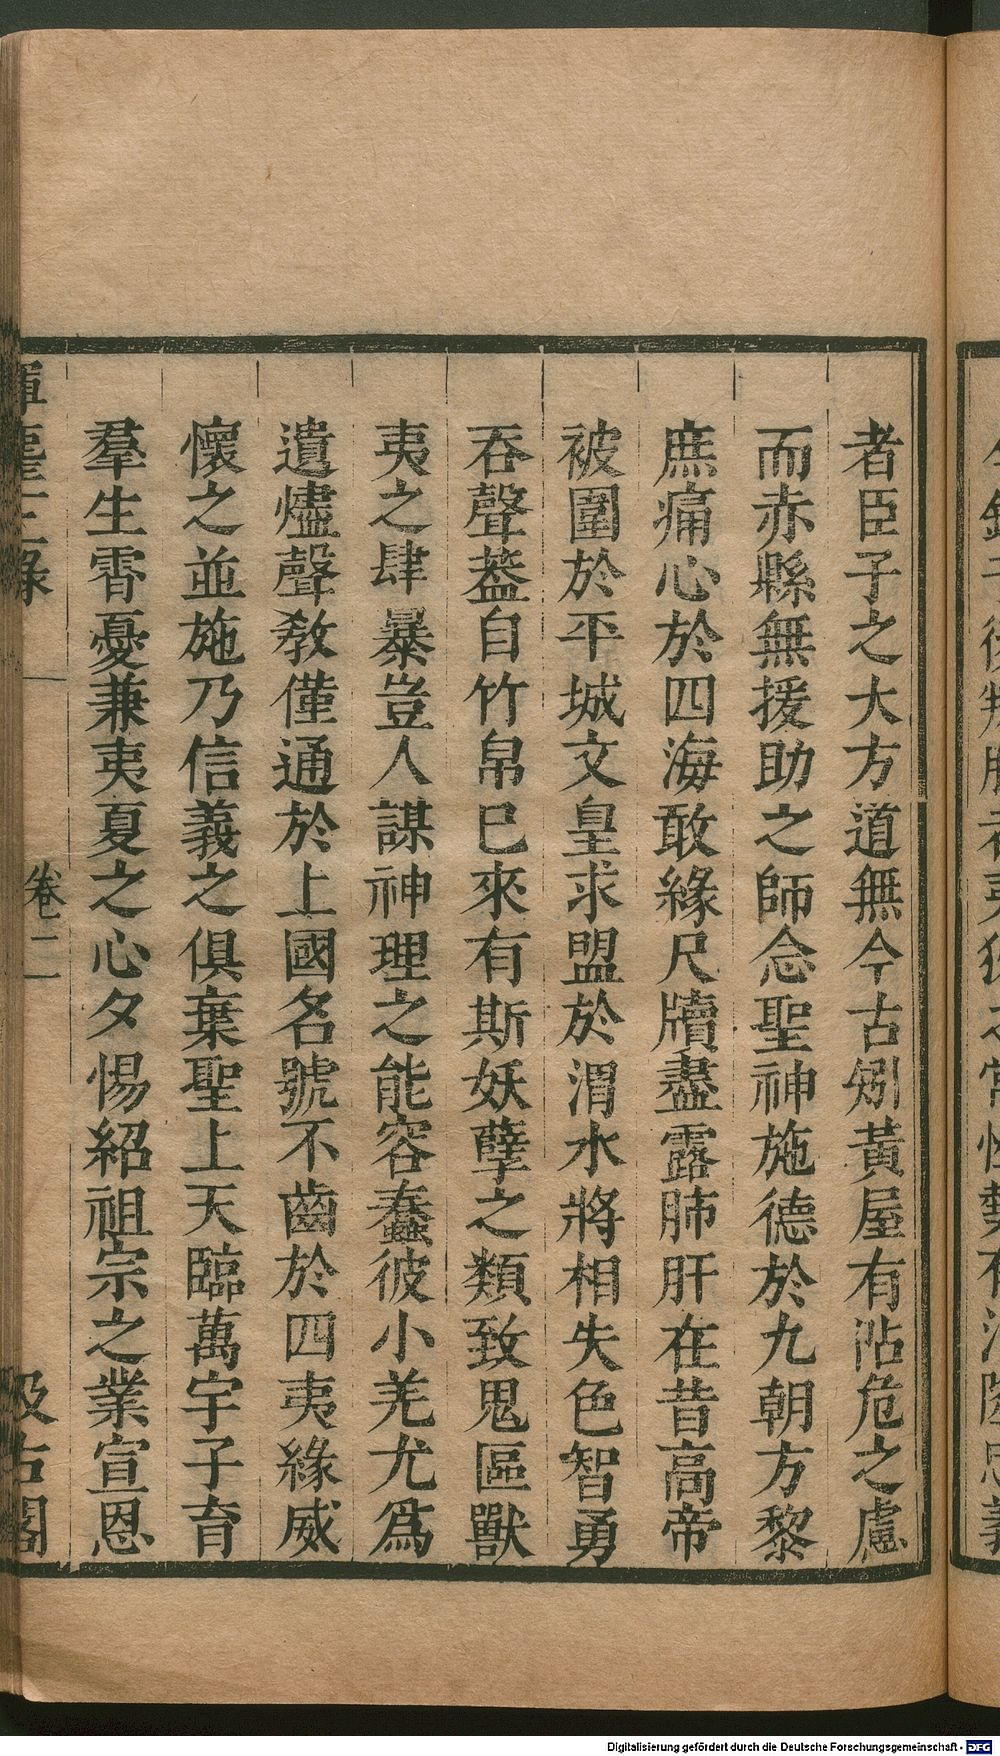 者臣子之大方道無今古矧黃屋有阽危之慮
而赤縣無援助之師念聖神施德於九朝方黎
庶痛心於四海敢緣尺牘盡露肺肝在昔高帝
被圍於平城文皇求盟於渭水將相失色智勇
吞聲葢自竹帛巳來有斯妖孽之類致鬼區獸
夷之肆暴豈人謀神理之能容蠢彼小羌尤爲
遺燼聲敎僅通於上國名號不齒於四夷緣威
懷之並施乃信義之俱棄聖上天臨萬宇子育
羣生霄憂兼夷夏之心夕惕紹祖宗之業宣恩
揮麈三錄 卷二 汲古閣
Digitalisierung gefördert durch die Deutsche Forschungsgemeinschaft - DFG